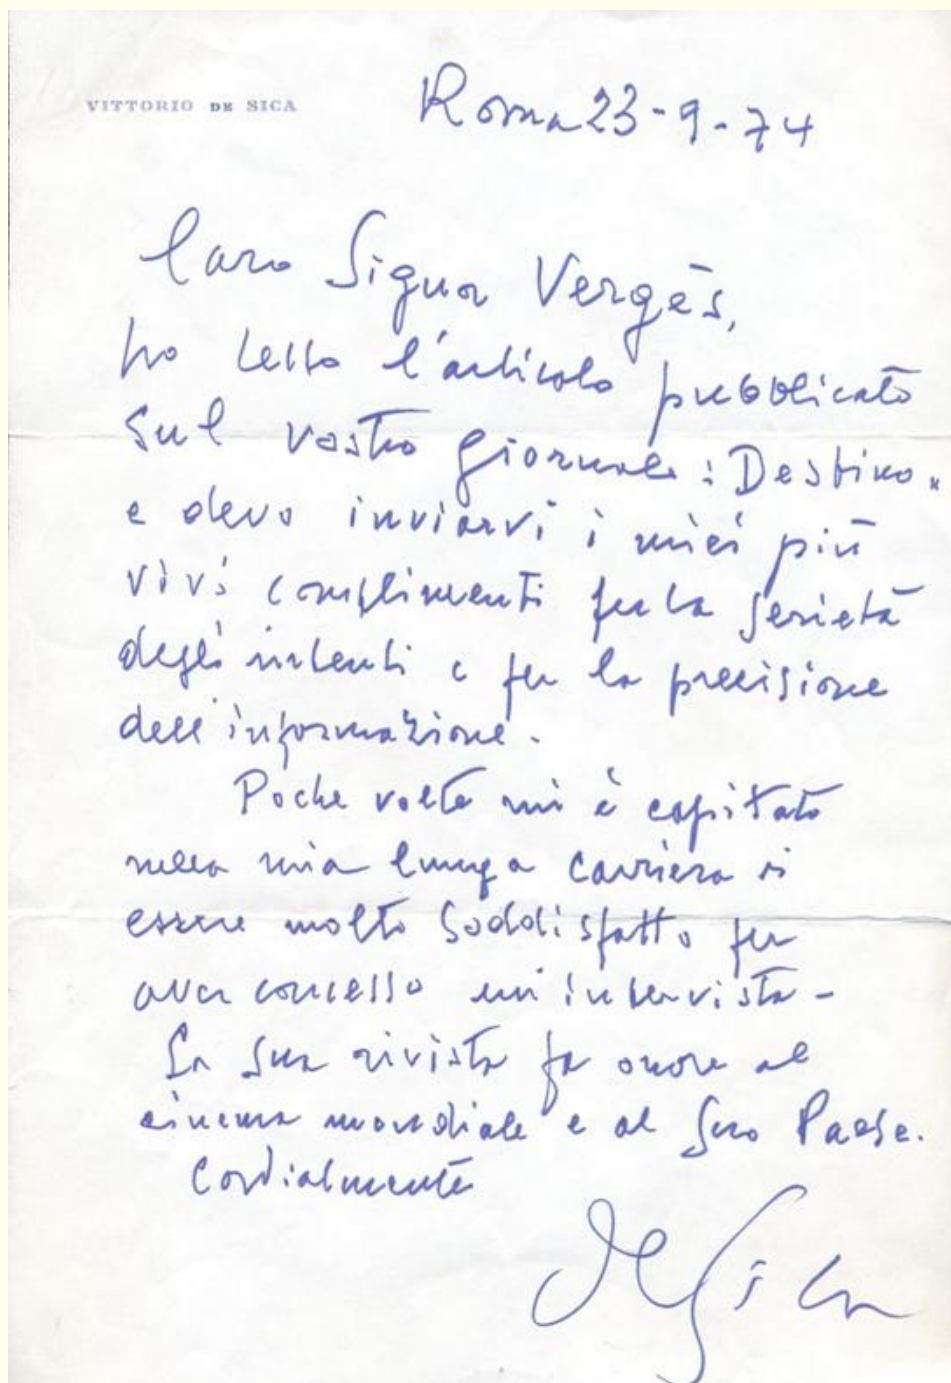 VITTORIO DE SICA
Roma 23-9-74
Caro Signor Vergés,
ho letto l'articolo pubblicato
sul vostro giornale: Destino"
e devo inviarvi i miei più
vivi complimenti per la serietà
degli intenti e per la precisione
dell'informazione.
Poche volte mi è capitato
nella mia lunga carriera di
essere molto soddisfatto per
aver concesso un'intervista -
La Sua rivista fa onore al
cinema mondiale e al Suo Paese.
Cordialmente
De Sica